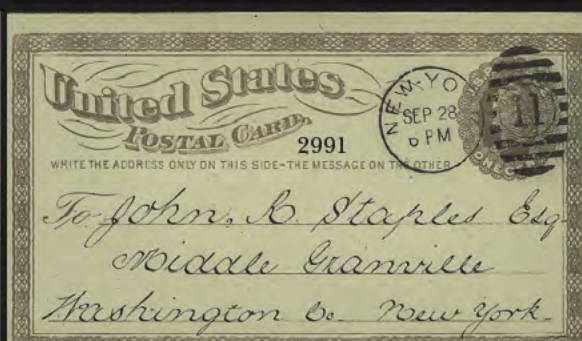 United States
POSTAL CARD.
2991
WRITE THE ADDRESS ONLY ON THIS SIDE-THE MESSAGE ON THE OTHER
NEW-YO
SEP 28
6 PM
11
To John, R. Staples Esq
Middle Granville
Washington Co. New York.